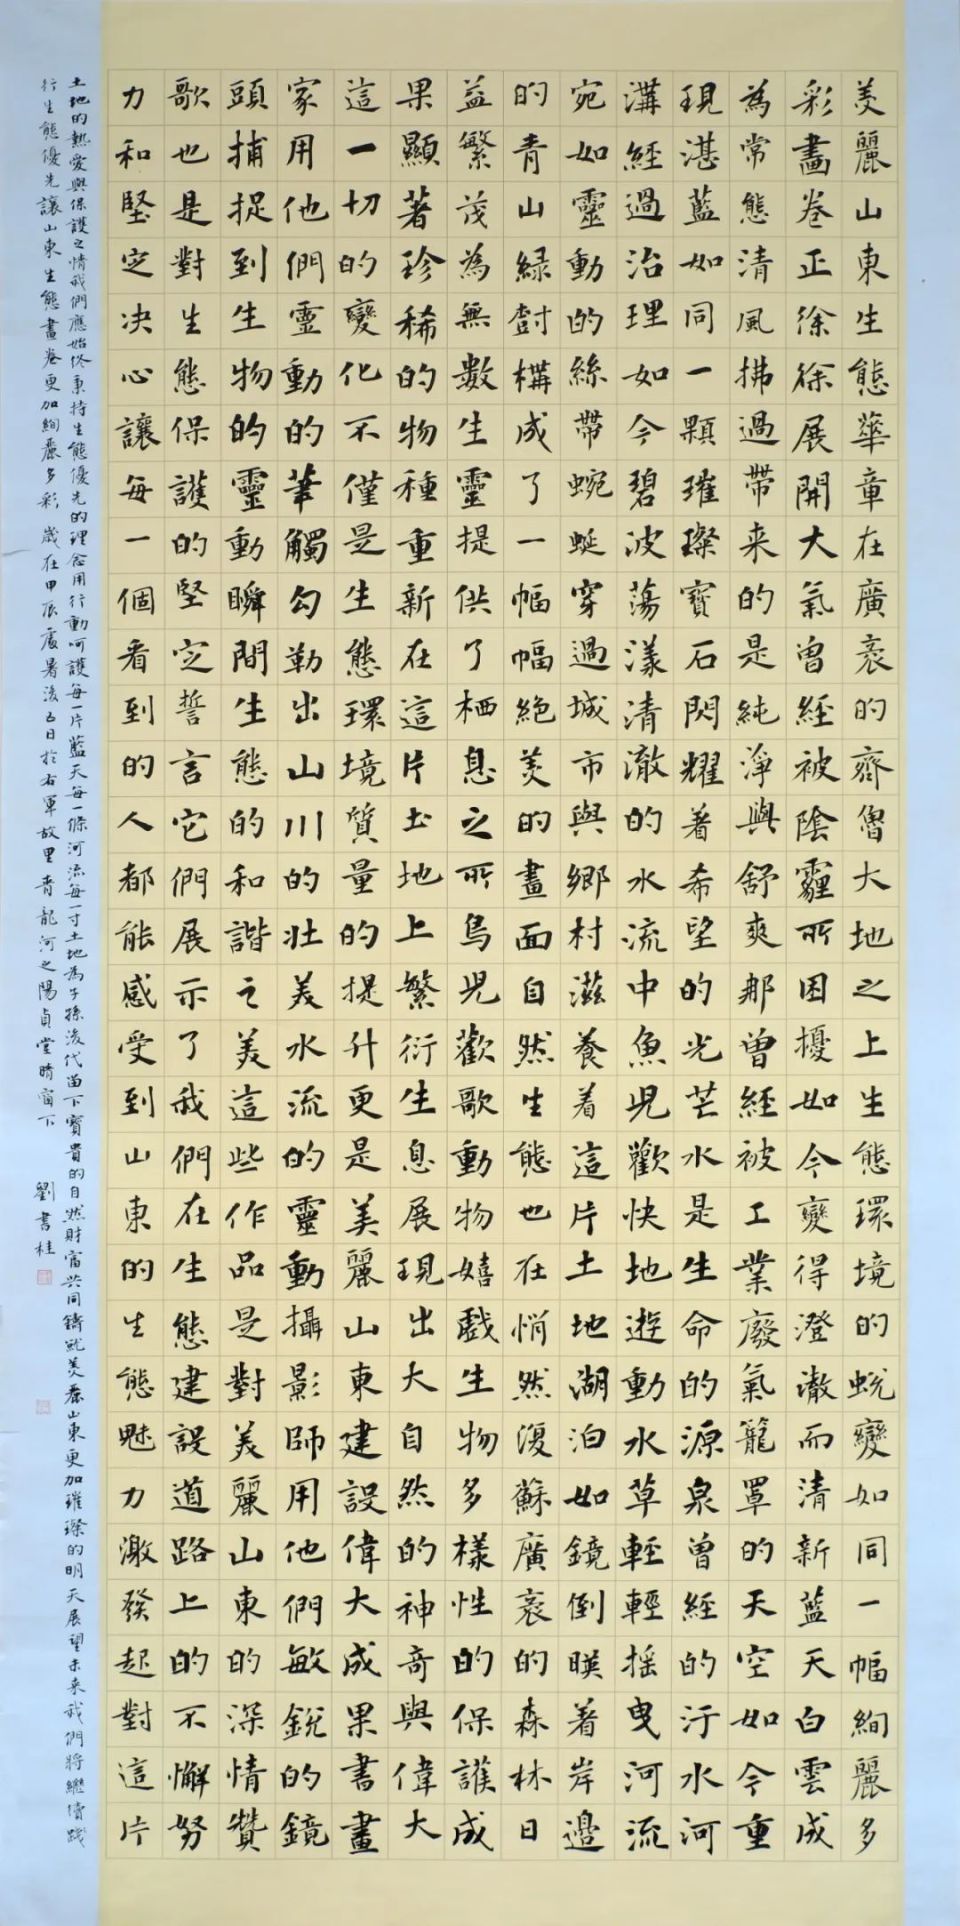 美麗山東生態華章在廣袤的齊魯大地之上生態環境的蛻變如同一幅絢麗多
彩畫卷正徐徐展開大氣曾經被陰霾所困擾如今變得澄澈而清新藍天白雲成
為常態清風拂過帶来的是純淨與舒爽那曾經被工業廢氣籠罩的天空如今重
現湛藍如同一顆璀璨寶石閃耀着希望的光芒水是生命的源泉曾經的汙水河
溝經過治理如今碧波蕩漾清澈的水流中魚兒歡快地遊動水草輕輕摇曳河流
宛如靈動的絲帶蜿蜒穿過城市與鄉村滋養着這片土地湖泊如鏡倒映着岸邊
的青山緑樹構成了一幅幅絕美的畫面自然生態也在悄然復蘇廣袤的森林日
益繁茂為無數生靈提供了栖息之所鳥兒歡歌動物嬉戲生物多樣性的保護成
果顯著珍稀的物種重新在這片土地上繁衍生息展現出大自然的神奇與偉大
這一切的變化不僅是生態環境質量的提升更是美麗山東建設偉大成果書畫
家用他們靈動的筆觸勾勒出山川的壮美水流的靈動攝影師用他們敏銳的鏡
頭捕捉到生物的靈動瞬間生態的和諧之美這些作品是對美麗山東的深情贊
歌也是對生態保護的堅定誓言它們展示了我們在生態建設道路上的不懈努
力和堅定决心讓每一個看到的人都能感受到山東的生態魅力激發起對這片
土地的熱愛與保護之情我們應始终秉持生態優先的理念用行動呵護每一片藍天每一條河流每一寸土地為子孫後代留下寶貴的自然財富共同鑄就美麗山東更加璀璨的明天展望未来我們將繼續踐
行生態優先讓山東生態畫卷更加絢麗多彩 歲在甲辰處暑後五日於右軍故里青龍河之陽貞堂晴窗下 劉書桂